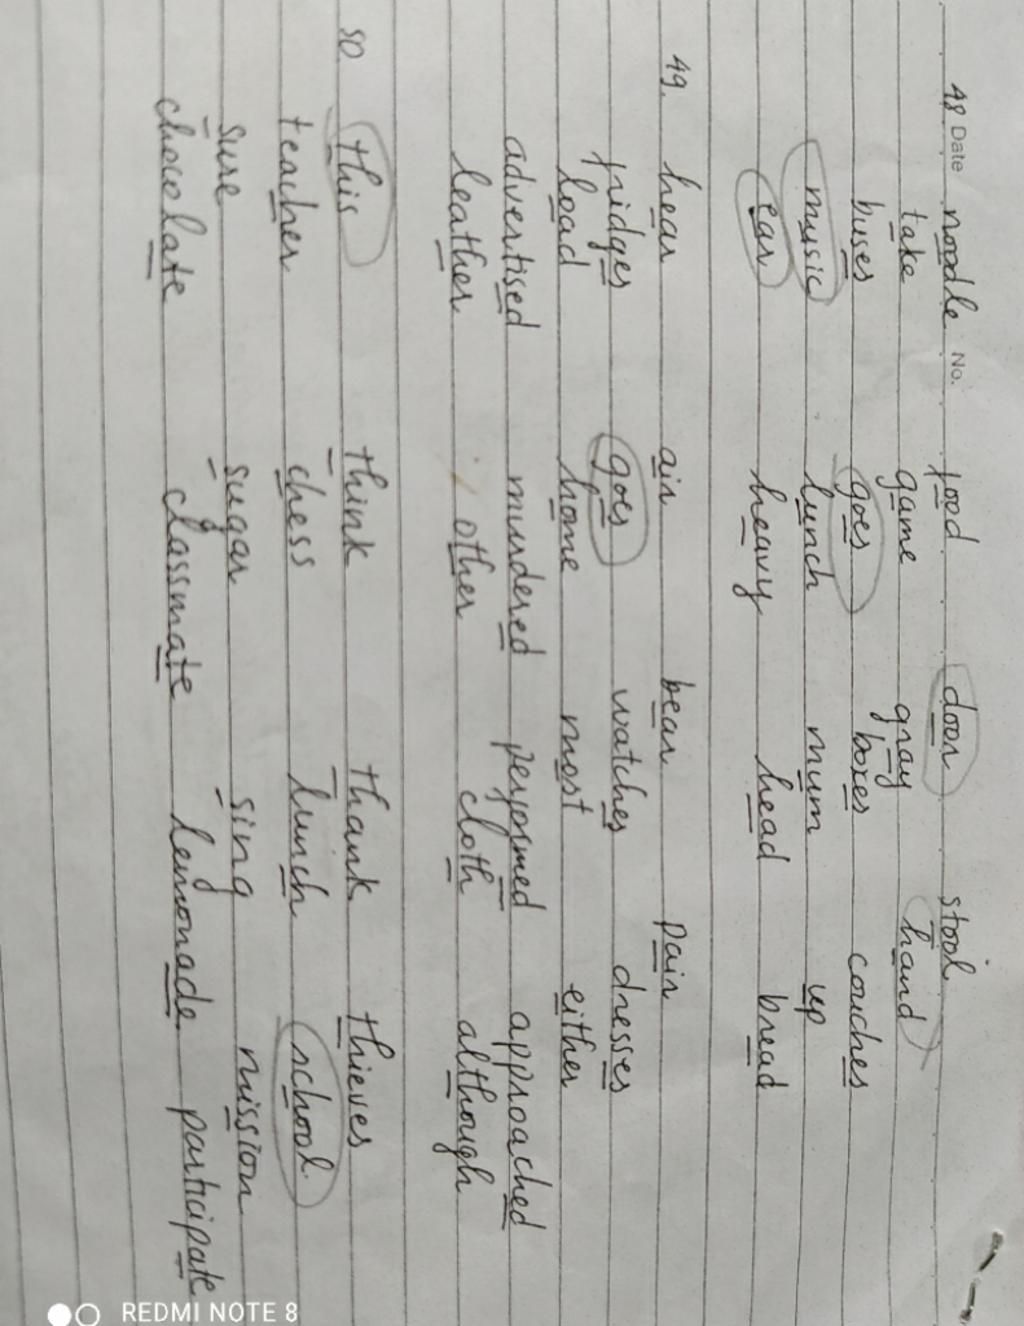 48 Date noodle No. food door stool
take game gray hand
buses goes boxes couches
music lunch mum up
ear heavy head bread
49. hear air bear pair
fridges goes watches dresses
load home most either
advertised murdered performed approached
leather other cloth although
50 this think thank thieves
teacher chess lunch school
sure sugar sing mission
chocolate classmate lemonade participate
REDMI NOTE 8